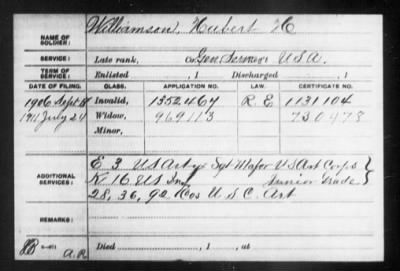 Williamson, Hubert H
NAME OF SOLDIER:
SERVICE: Late rank, Gen Service U.S.A.
TERM OF SERVICE: Enlisted , 1 Discharged , 1
DATE OF FILING. CLASS. APPLICATION NO. LAW. CERTIFICATE NO.
1906 Sept Invalid, 1352464 R. E. 1131104
1911 July 24 Widow, 969113 730473
Minor,
ADDITIONAL SERVICES:
E 3 US Arty Sgt Major US Art Corps
K 16 US Inf Junior Grade
28, 36, 92 Cos U S C. Art
REMARKS:
Died , 1 , at